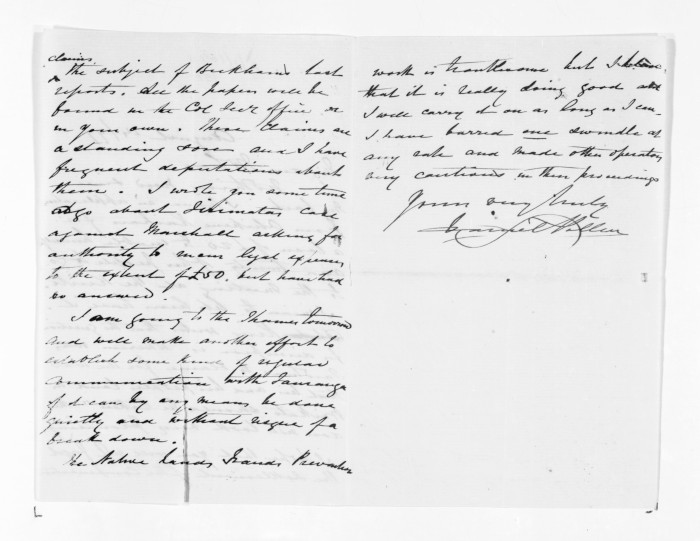 claims
the subject of Beckham's last
reports. All the papers will be
found in the Col Sec's Office or
in your own. These Claims are
a standing sore and I have
frequent deputations about
them. I wrote you some time
ago about case
against Marshall asking for
authority to incur legal expenses
to the extent of £50, but have had
no answer.
I am going to the Thames tomorrow
and will make another effort to
establish some kind of regular
communication with Tauranga
if it can by any means be done
quietly and without risque of a
break down.
The Native Lands Frauds Prevention
work is troublesome but I believe
that it is really doing good and
I will carry it on as long as I can.
I have barred one swindle at
any rate and made other operators
very cautious in their proceedings
Yours very truly
Daniel Pollen